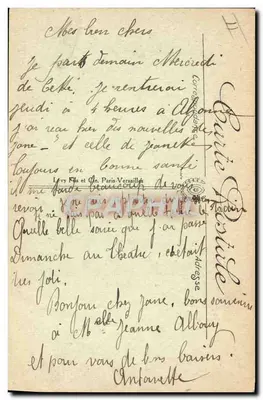 Mes bien chers
Je pars demain Mercredi
de Cette. je rentrerai
jeudi à 4 heures à
j'ai reçu hier des nouvelles de
Jane - et celle de Jeanette
toujours en bonne santé
Lévy Fils et Cie, Paris-Versailles
il me tarde beaucoup de vous
revoir
Quelle belle soirée que j'ai passé
Dimanche au théâtre, c'était
très joli.
Bonjour chez Jane, bons souvenirs
à Melle Jeanne Albouy
et pour vous de bons baisers.
Antoinette
Carte Postale
Correspondance
Adresse